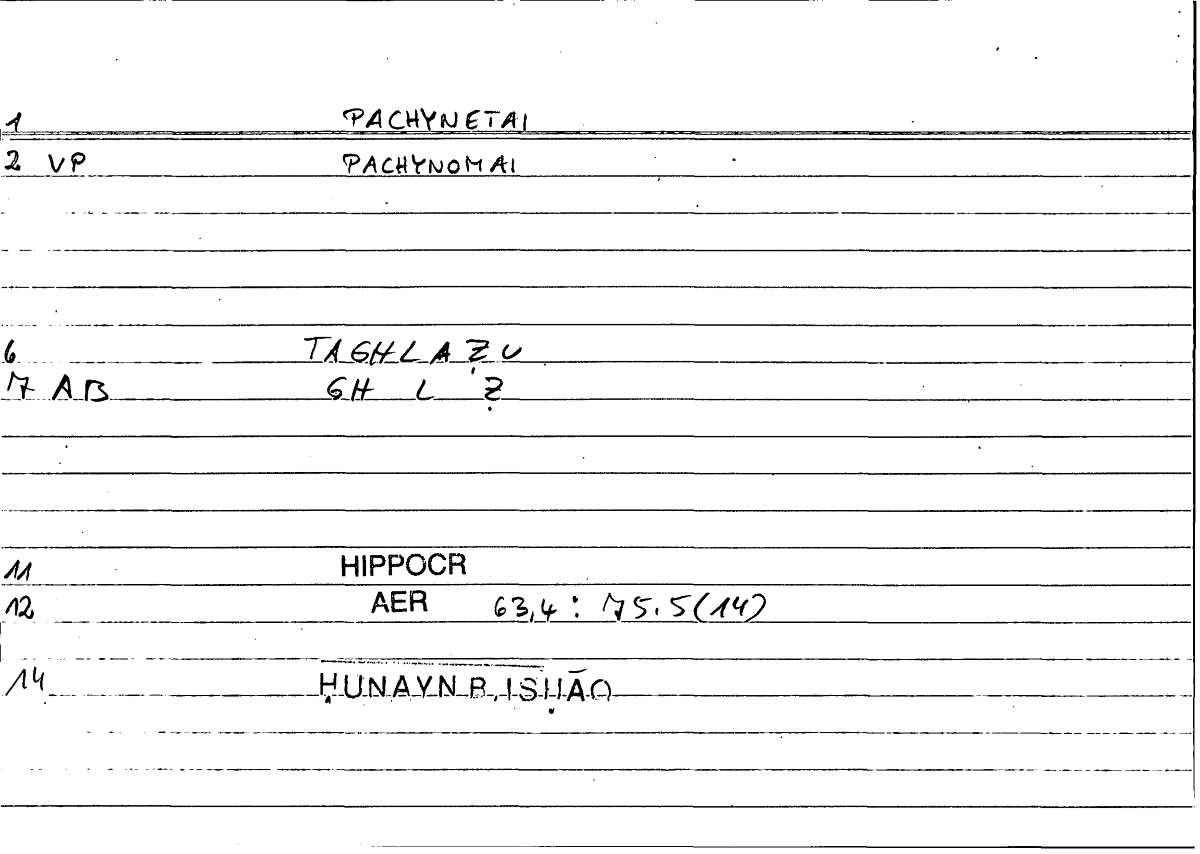 1 PACHYNETAI
2 VP PACHYNOMAI
6 TAGHLAẒU
7 AB GH L Ẓ
11 HIPPOCR
12 AER 63,4 : 75.5(14)
14 ḤUNAYN B. ISḤĀQ